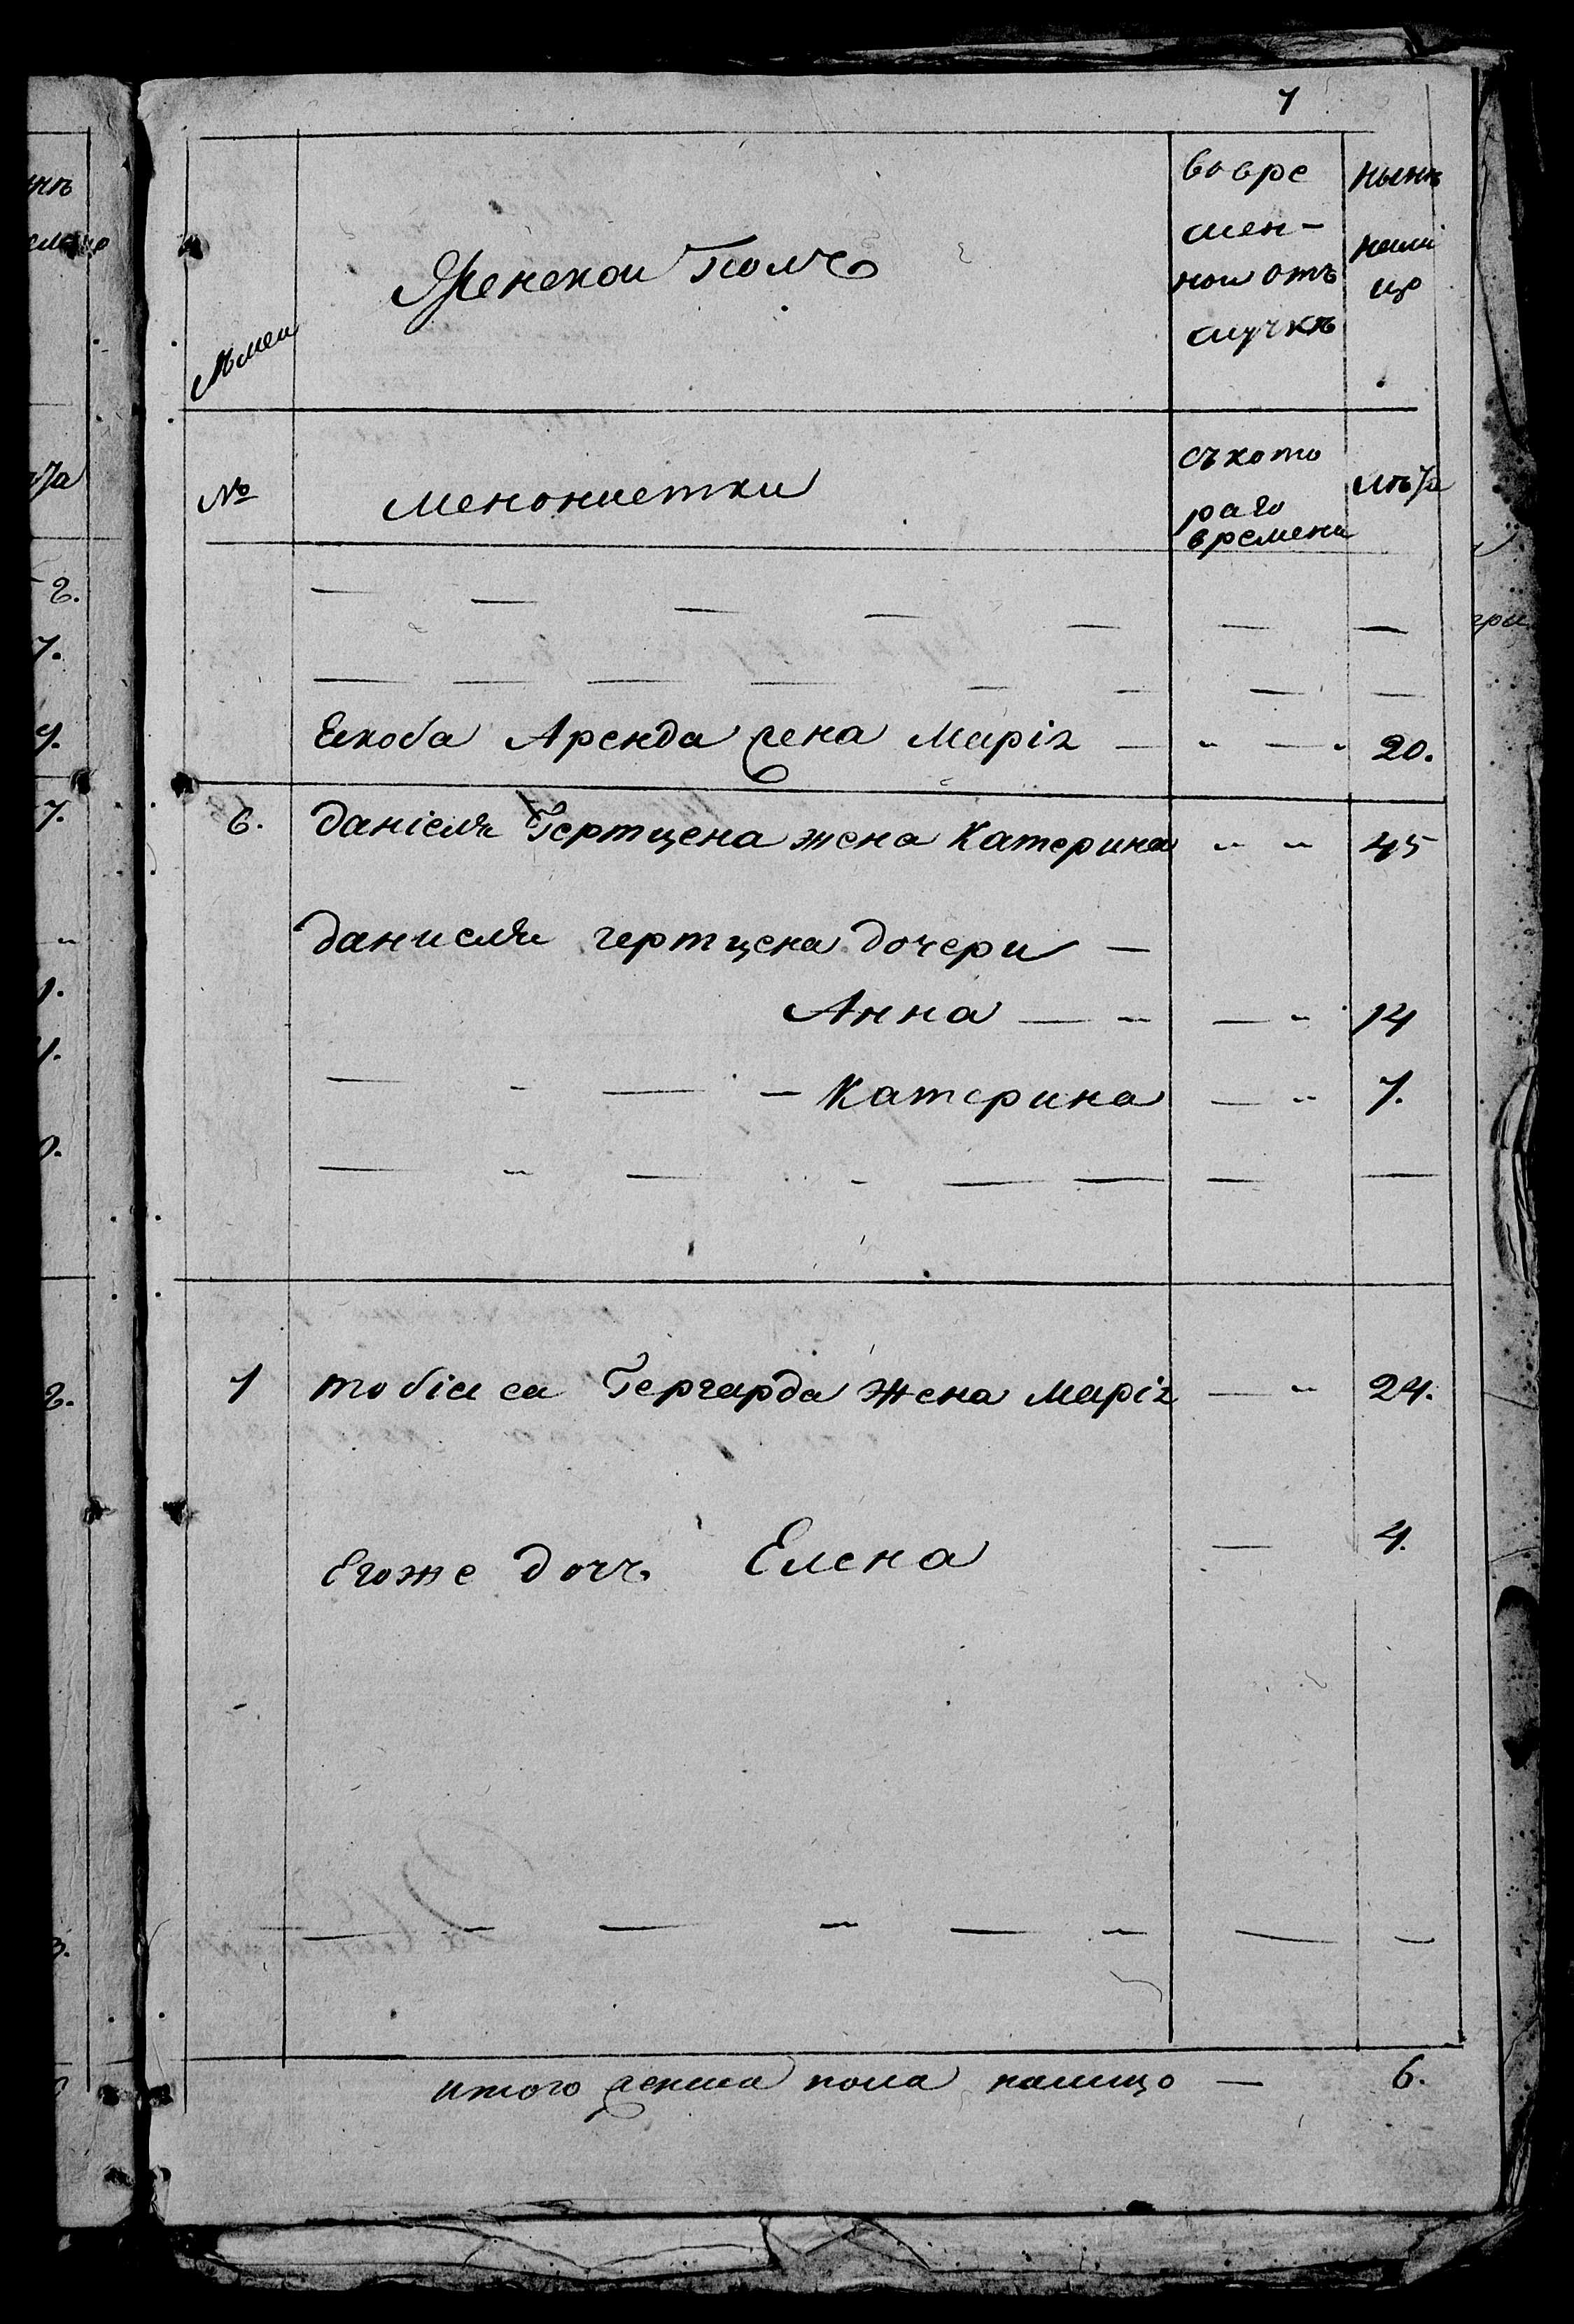 7
Женской Полъ
во вре
мен-
ной отъ
лучкѣ
нынѣ
нали
цо
№
Менонистки
съ кото
раго
времени
лѣта
Якоба Аренда жена Марія — " — " 20.
6. Даніеля Гертцена жена Катерина " " 45
Даниеля гертцена дочери —
Анна — " — " 14
— " — " — Катерина — " 7.
7 тобіаса Гергарда жена Марія — " 24.
Егоже дочь Елена — 4.
итого женска пола налицо — 6.